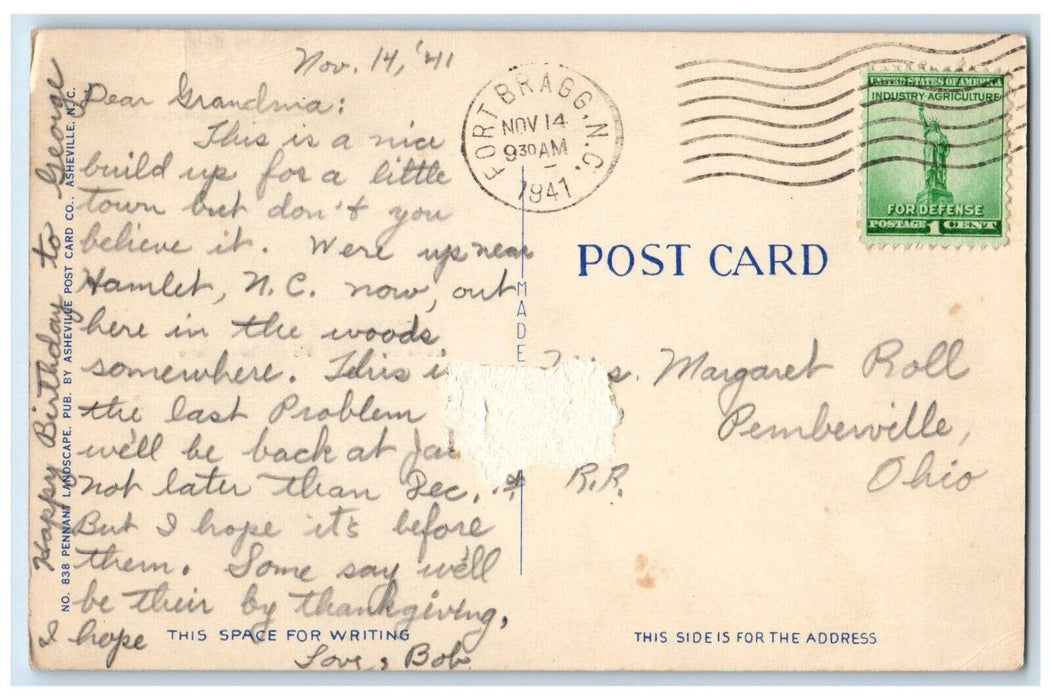 Nov. 14, '41
Dear Grandma:
This is a nice
build up for a little
town but don't you
believe it. Were up near
Hamlet, N.C. now, out
here in the woods
somewhere. This
the last Problem
we'll be back at
not later than Dec. 1st
But I hope it's before
them. Some say we'll
be their by thankgiving,
I hope
Love, Bob
Happy Birthday to George
NO. 838 PENNANT LANDSCAPE, PUB. BY ASHEVILLE POST CARD CO., ASHEVILLE, N.C.
THIS SPACE FOR WRITING
MADE
FORT BRAGG, N.C.
NOV 14
930 AM
1941
UNITED STATES OF AMERICA
INDUSTRY·AGRICULTURE
FOR DEFENSE
POSTAGE 1 CENT
POST CARD
Margaret Roll
Pemberville,
R.R. Ohio
THIS SIDE IS FOR THE ADDRESS